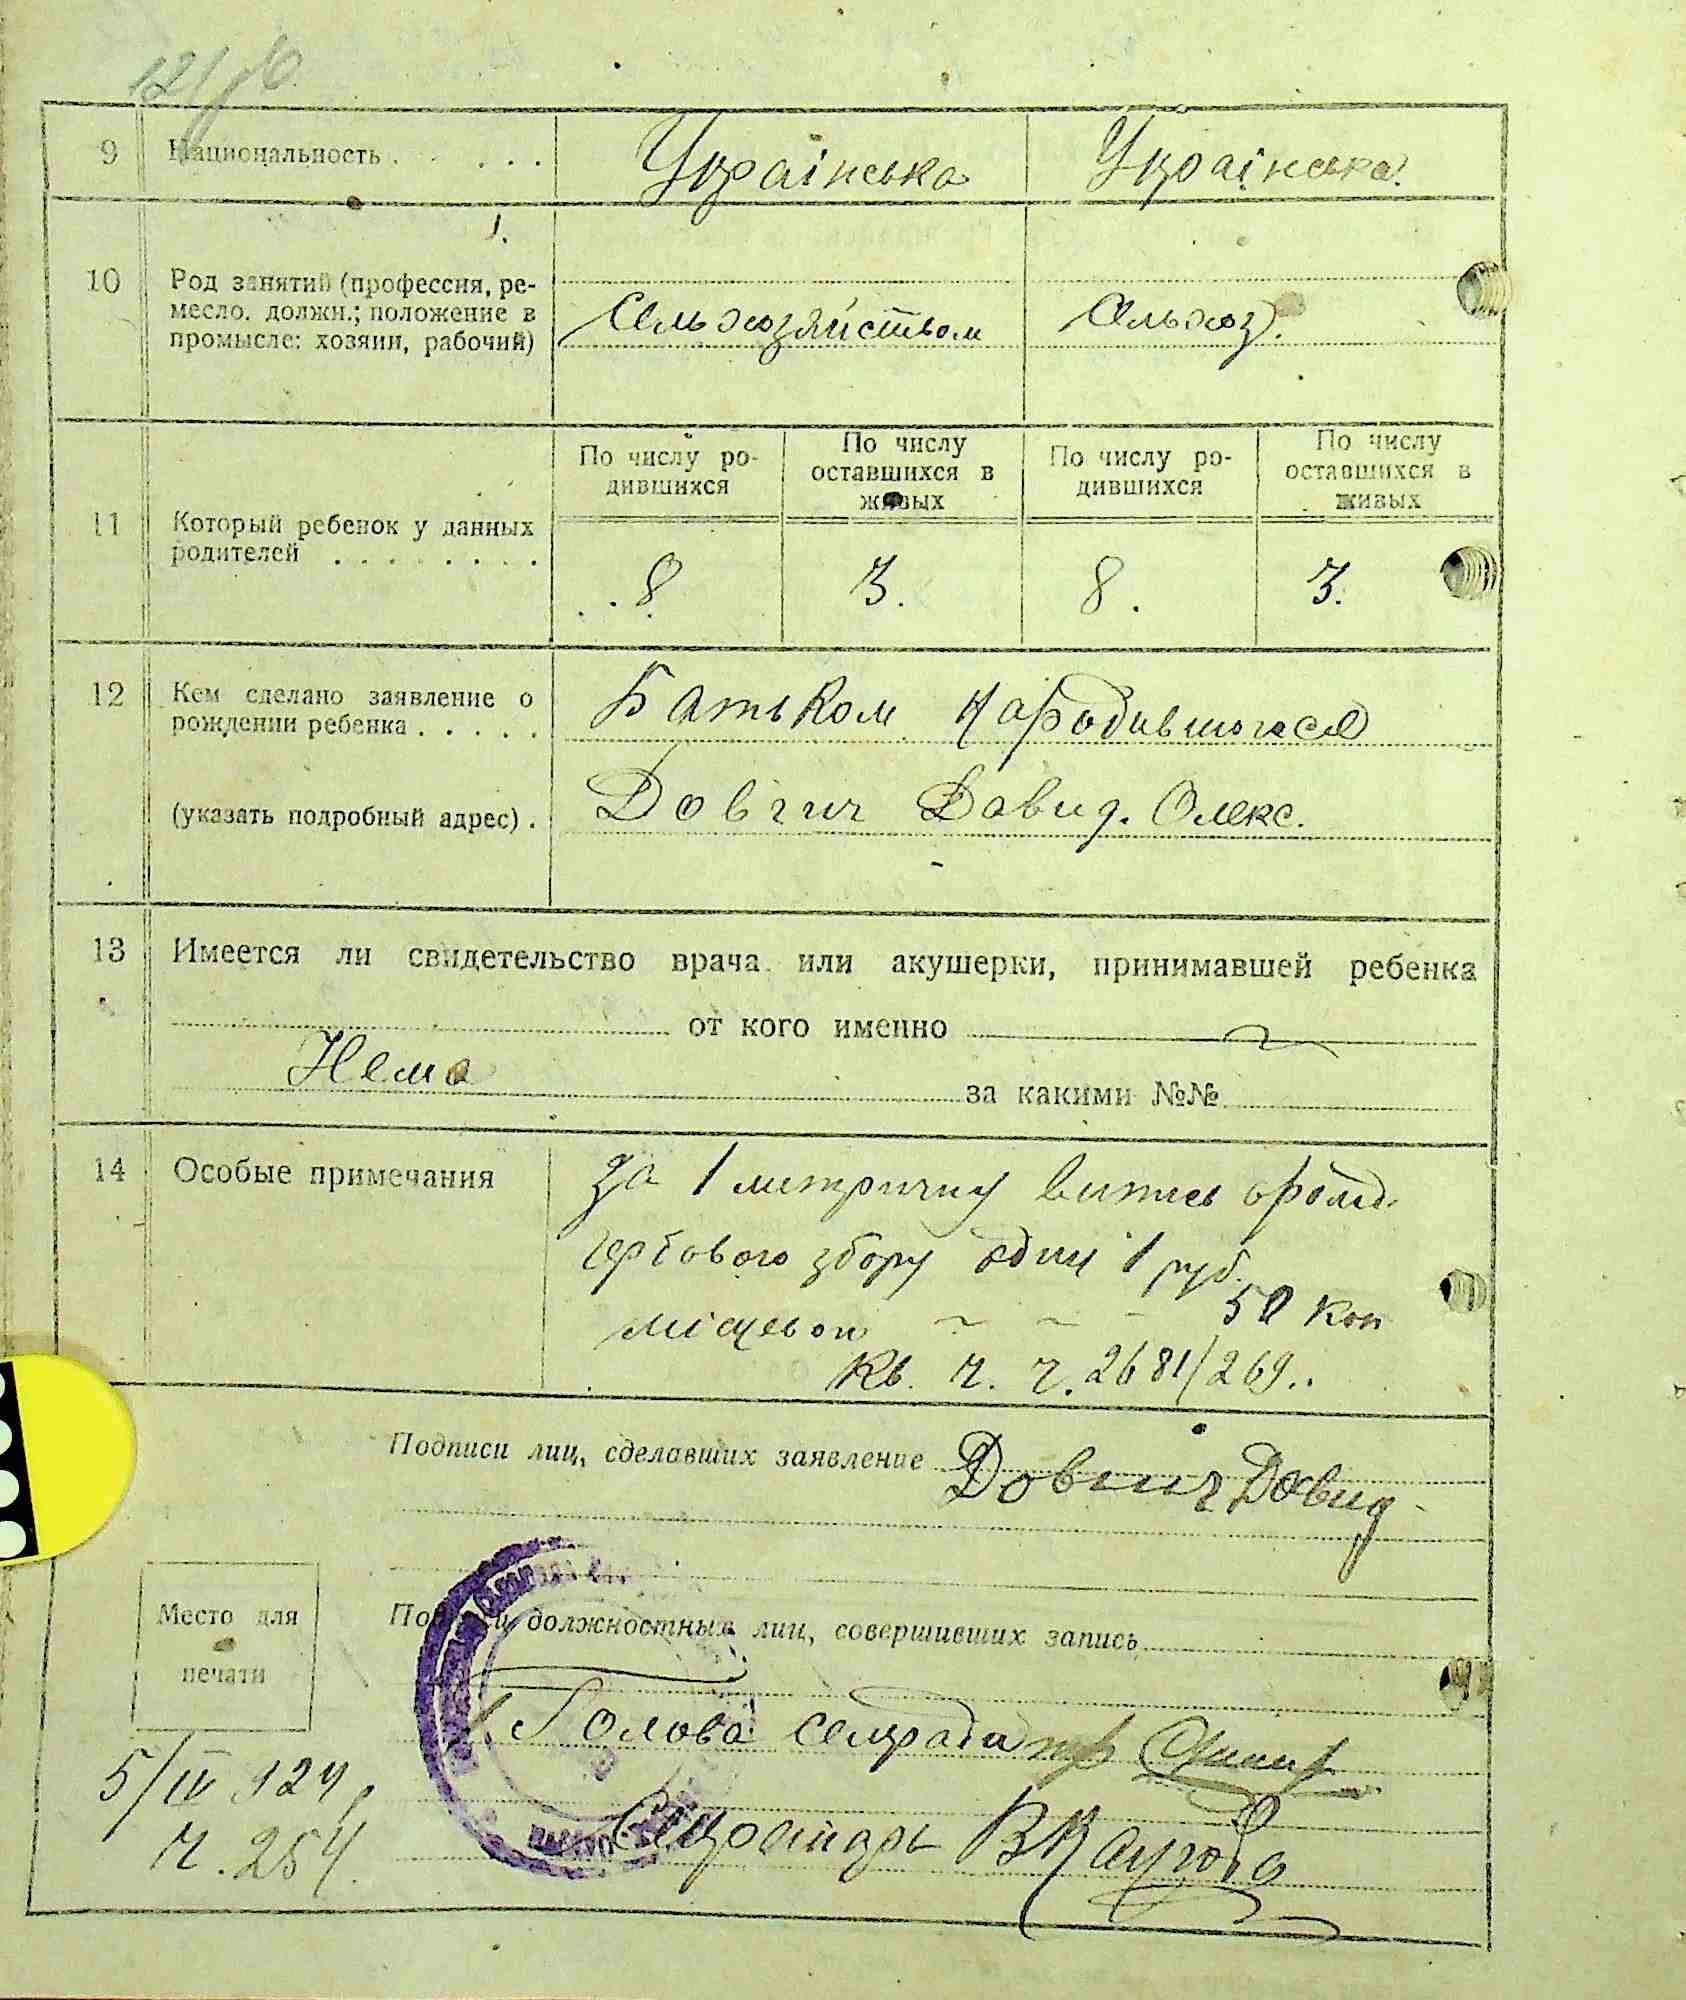 9 Национальность . . . . . . Українська Українська
10 Род занятий (профессия, ре-
месло, должн.; положение в
промысле: хозяин, рабочий)
Сельхозяйством Сельхоз.
11 Который ребенок у данных
родителей . . . . . . . .
По числу ро-
дившихся
По числу
оставшихся в
живых
По числу ро-
дившихся
По числу
оставшихся в
живых
8 3. 8. 3.
12 Кем сделано заявление о
рождении ребенка . . . . .
(указать подробный адрес) .
Батьком народившогося
Довгич Давид. Олекс.
13 Имеется ли свидетельство врача или акушерки, принимавшей ребенка
от кого именно
Нема за какими №№
14 Особые примечания
За 1 метричну випись
гербового збору один 1 руб.
50 коп
Кв. ч. ч. 2681/269..
Подписи лиц, сделавших заявление Довгич Давид
Место для
печати
Подписи должностных лиц, совершивших запись
Голова сельради
Секретарь
5/IV 124
ч. 254.